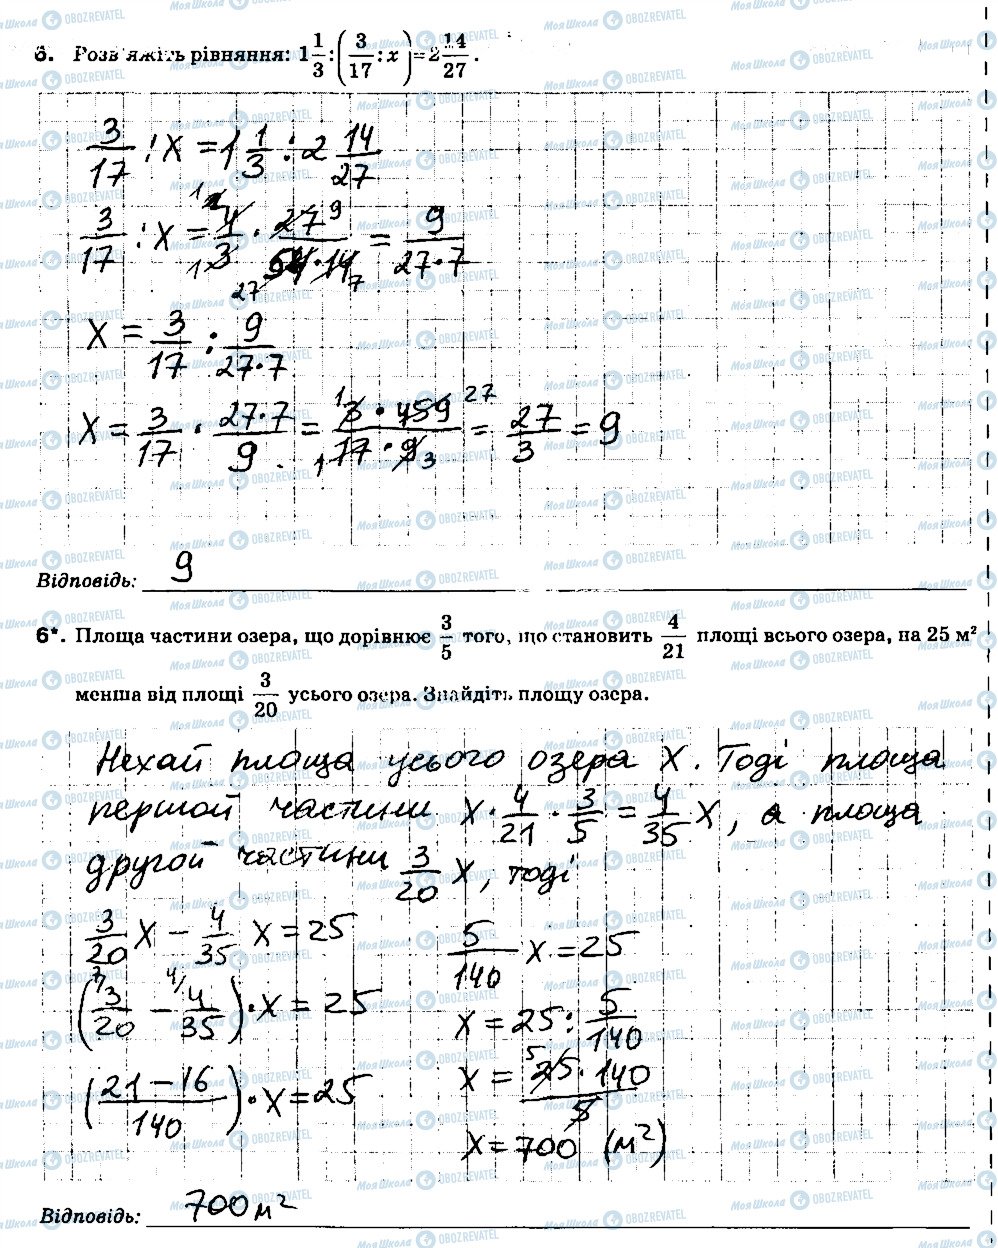 6. Розв'яжіть рівняння: 1 1/3 : (3/17 : x) = 2 14/27 .
3/17 : X = 1 1/3 : 2 14/27
3/17 : X = 4/3 · 27 9/54·14 = 9/27·7
X = 3/17 : 9/27·7
X = 3/17 · 27·7/9 = 3·459/17·9 = 27/3 = 9
Відповідь: 9
6*. Площа частини озера, що дорівнює 3/5 того, що становить 4/21 площі всього озера, на 25 м²
менша від площі 3/20 усього озера. Знайдіть площу озера.
Нехай площа усього озера X. Тоді площа
першої частини X · 4/21 · 3/5 = 4/35 X, а площа
другої частини 3/20 X, тоді
3/20 X − 4/35 X = 25
(3/20 − 4/35) · X = 25
(21−16/140) · X = 25
5/140 X = 25
X = 25 : 5/140
X = 25·140/5
X = 700 (м²)
Відповідь: 700 м²
МояШкола OBOZREVATEL